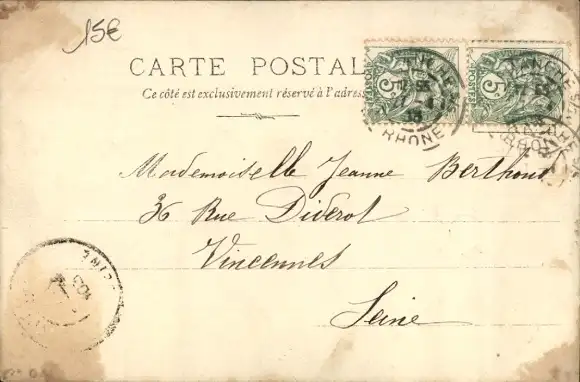 15€
CARTE POSTAL
Ce côté est exclusivement réservé à l'adress
5 5
POSTES POSTES
RHONE
Mademoiselle Jeanne Berthout
36 Rue Diderot
Vincennes
Seine
03